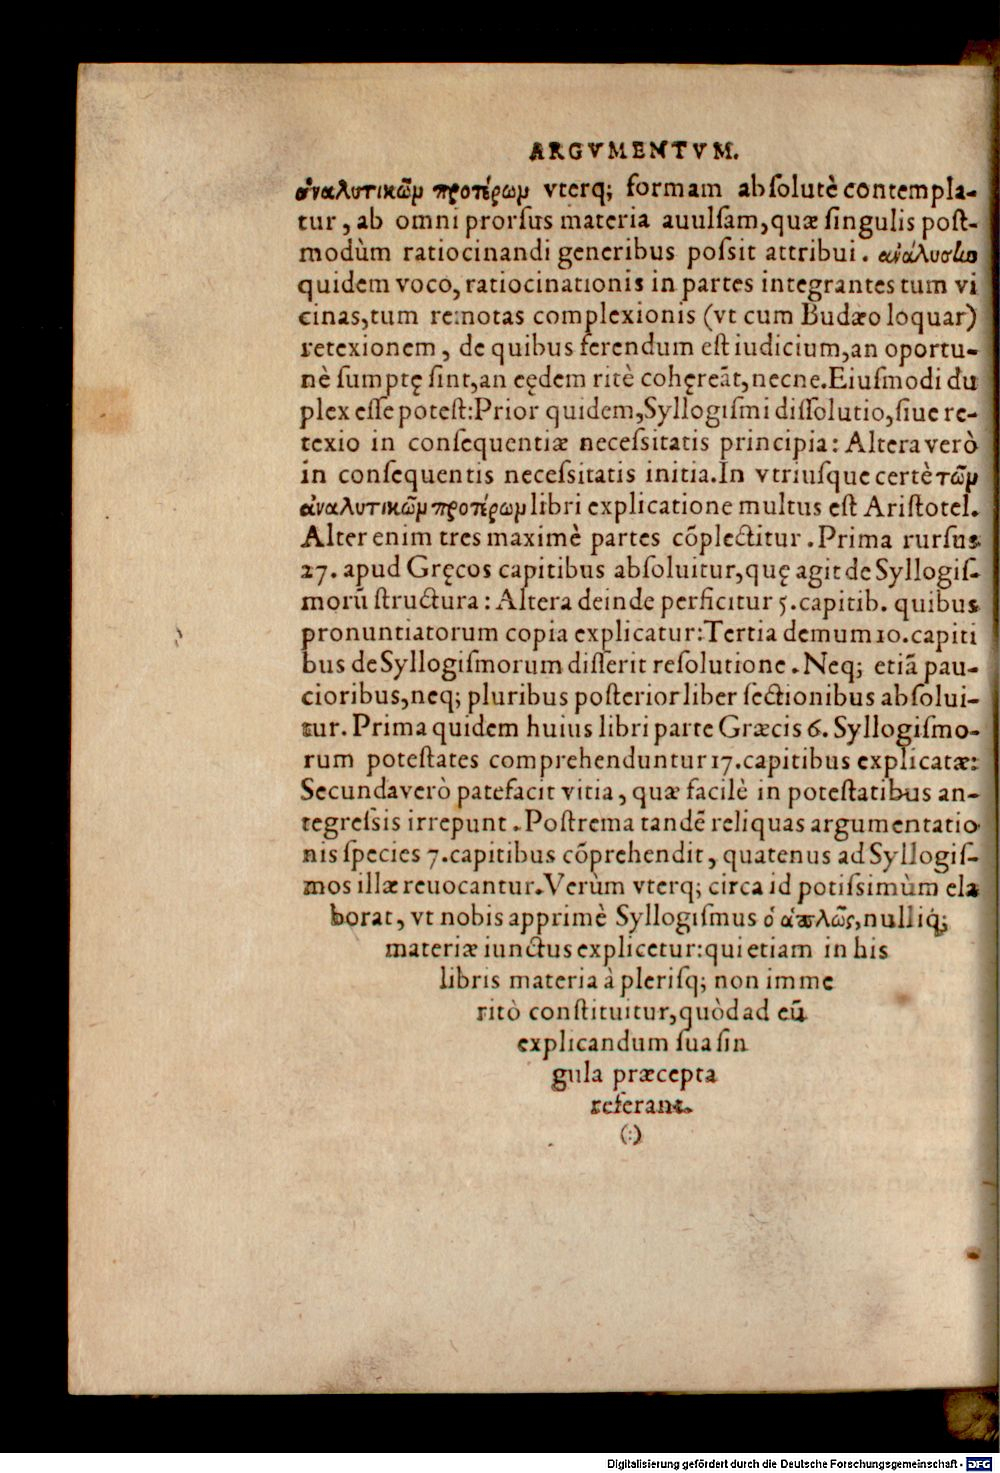 ARGVMENTVM.
ἀναλυτικῶμ προτέρωμ vterq; formam abſolutè contempla-
tur, ab omni prorſus materia auulſam, quæ ſingulis poſt-
modùm ratiocinandi generibus poſsit attribui. ἀνάλυσιν
quidem voco, ratiocinationis in partes integrantes tum vi
cinas, tum remotas complexionis (vt cum Budæo loquar)
retexionem, de quibus ferendum eſt iudicium, an oportu-
nè ſumptę ſint, an eędem ritè cohęreāt, necne. Eiuſmodi du
plex eſſe poteſt: Prior quidem, Syllogiſmi diſſolutio, ſiue re-
texio in conſequentiæ neceſsitatis principia: Altera verò
in conſequentis neceſsitatis initia. In vtriuſque certè τῶμ
ἀναλυτικῶμ προτέρωμ libri explicatione multus eſt Ariſtotel.
Alter enim tres maximè partes cōplectitur. Prima rurſus
27. apud Gręcos capitibus abſoluitur, quę agit de Syllogiſ-
morū ſtructura: Altera deinde perficitur 5. capitib. quibus
pronuntiatorum copia explicatur: Tertia demum 10. capiti
bus de Syllogiſmorum diſſerit reſolutione. Neq; etiā pau-
cioribus, neq; pluribus poſterior liber ſectionibus abſolui-
tur. Prima quidem huius libri parte Græcis 6. Syllogiſmo-
rum poteſtates comprehenduntur 17. capitibus explicatæ:
Secunda verò patefacit vitia, quæ facilè in poteſtatibus an-
tegreſsis irrepunt. Poſtrema tandē reliquas argumentatio
nis ſpecies 7. capitibus cōprehendit, quatenus ad Syllogiſ-
mos illæ reuocantur. Verùm vterq; circa id potiſsimùm ela
borat, vt nobis apprimè Syllogiſmus ὁ ἁπλῶς, nulliq́;
materiæ iunctus explicetur: qui etiam in his
libris materia à pleriſq; non imme
ritò conſtituitur, quòd ad eū
explicandum ſua ſin
gula præcepta
referant.
(:)
Digitalisierung gefördert durch die Deutsche Forschungsgemeinschaft - DFG